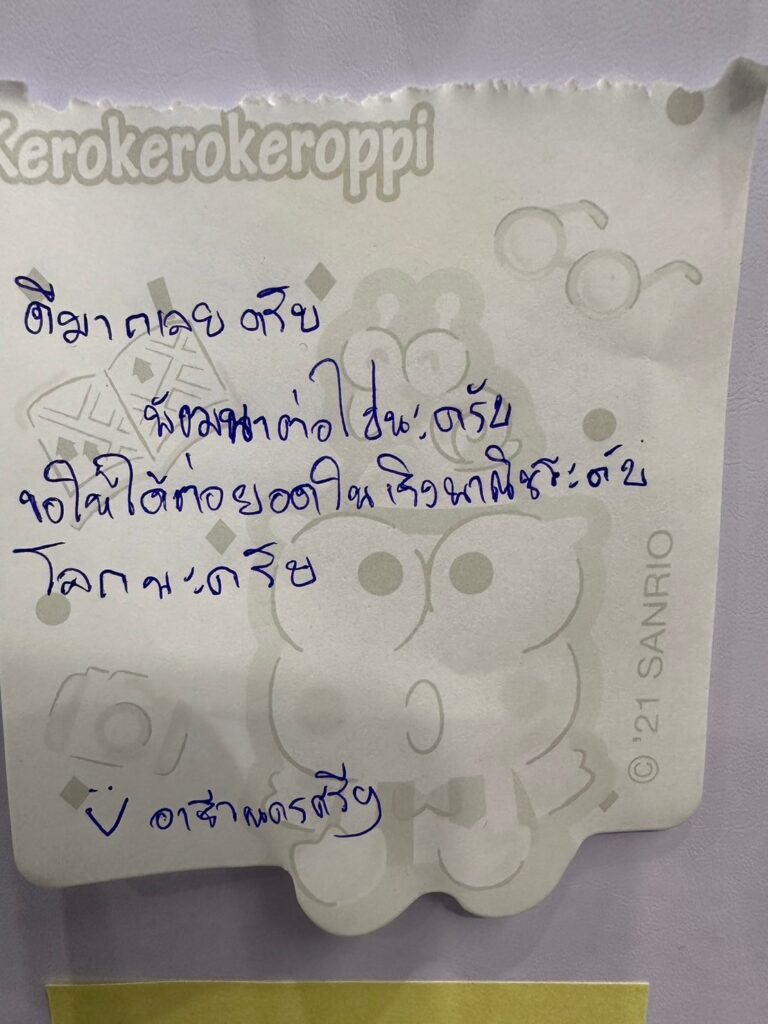 Kerokerokeroppi
ดีมากเลยครับ
พัฒนาต่อไปนะครับ
ขอให้ได้ต่อยอดในเชิงพาณิชระดับ
โลกนะครับ
© '21 SANRIO